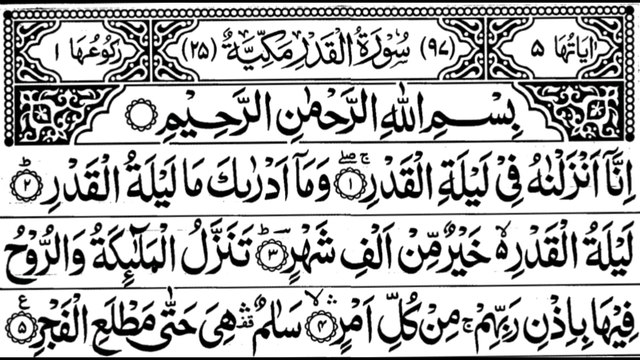 اٰیَاتُهَا ۵ (۹۷) سُوْرَةُ الْقَدْرِ مَکِّیَّةٌ (۲۵) رُکُوْعُهَا ۱
بِسْمِ اللّٰهِ الرَّحْمٰنِ الرَّحِیْمِ
اِنَّاۤ اَنْزَلْنٰهُ فِیْ لَیْلَةِ الْقَدْرِ ۚۖ۝۱ وَمَاۤ اَدْرٰىكَ مَا لَیْلَةُ الْقَدْرِ ؕ۝۲
لَیْلَةُ الْقَدْرِ ۙ۬ خَیْرٌ مِّنْ اَلْفِ شَهْرٍ ؕؔ۝۳ تَنَزَّلُ الْمَلٰٓىِٕكَةُ وَالرُّوْحُ
فِیْهَا بِاِذْنِ رَبِّهِمْ ۚ مِنْ كُلِّ اَمْرٍ ۙۛ۝۴ سَلٰمٌ ۛ۫ هِیَ حَتّٰى مَطْلَعِ الْفَجْرِ ۝۵ ع